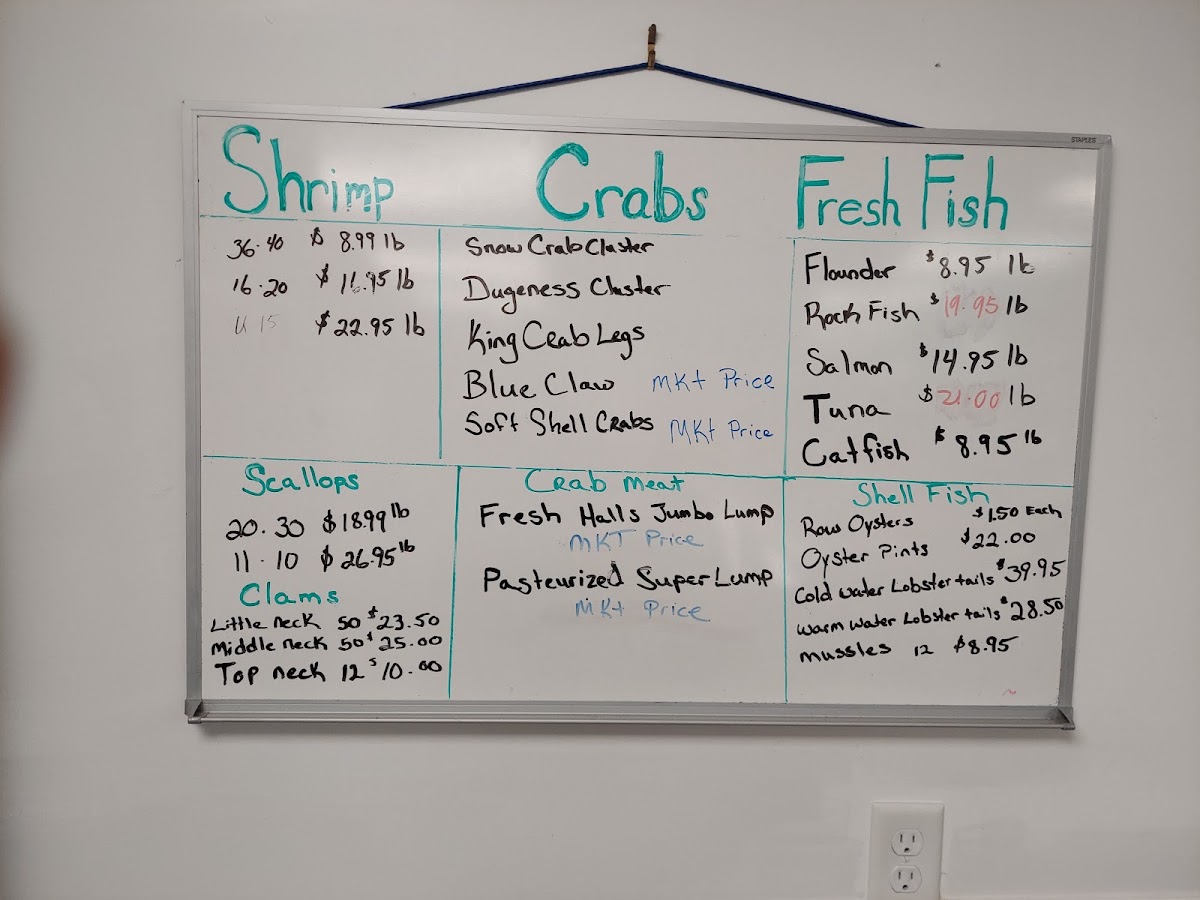 STAPLES
Shrimp
36-40 $ 8.99 lb
16-20 $ 16.95 lb
U 15 $22.95 lb
Crabs
Snow Crab Claster
Dugeness Claster
King Crab Legs
Blue Claw MKt Price
Soft Shell Crabs MKt Price
Fresh Fish
Flounder $8.95 lb
Rock Fish $19.95 lb
Salmon $14.95 lb
Tuna $21.00 lb
Catfish $8.95 lb
Scallops
20-30 $18.99 lb
11-10 $26.95 lb
Clams
Little neck 50 $23.50
Middle neck 50 $25.00
Top neck 12 $10.00
Crab meat
Fresh Halls Jumbo Lump
MKT Price
Pasteurized Super Lump
MKt Price
Shell Fish
Raw Oysters $1.50 Each
Oyster Pints $22.00
Cold water Lobster tails $39.95
Warm water Lobster tails $28.50
mussles 12 $8.95